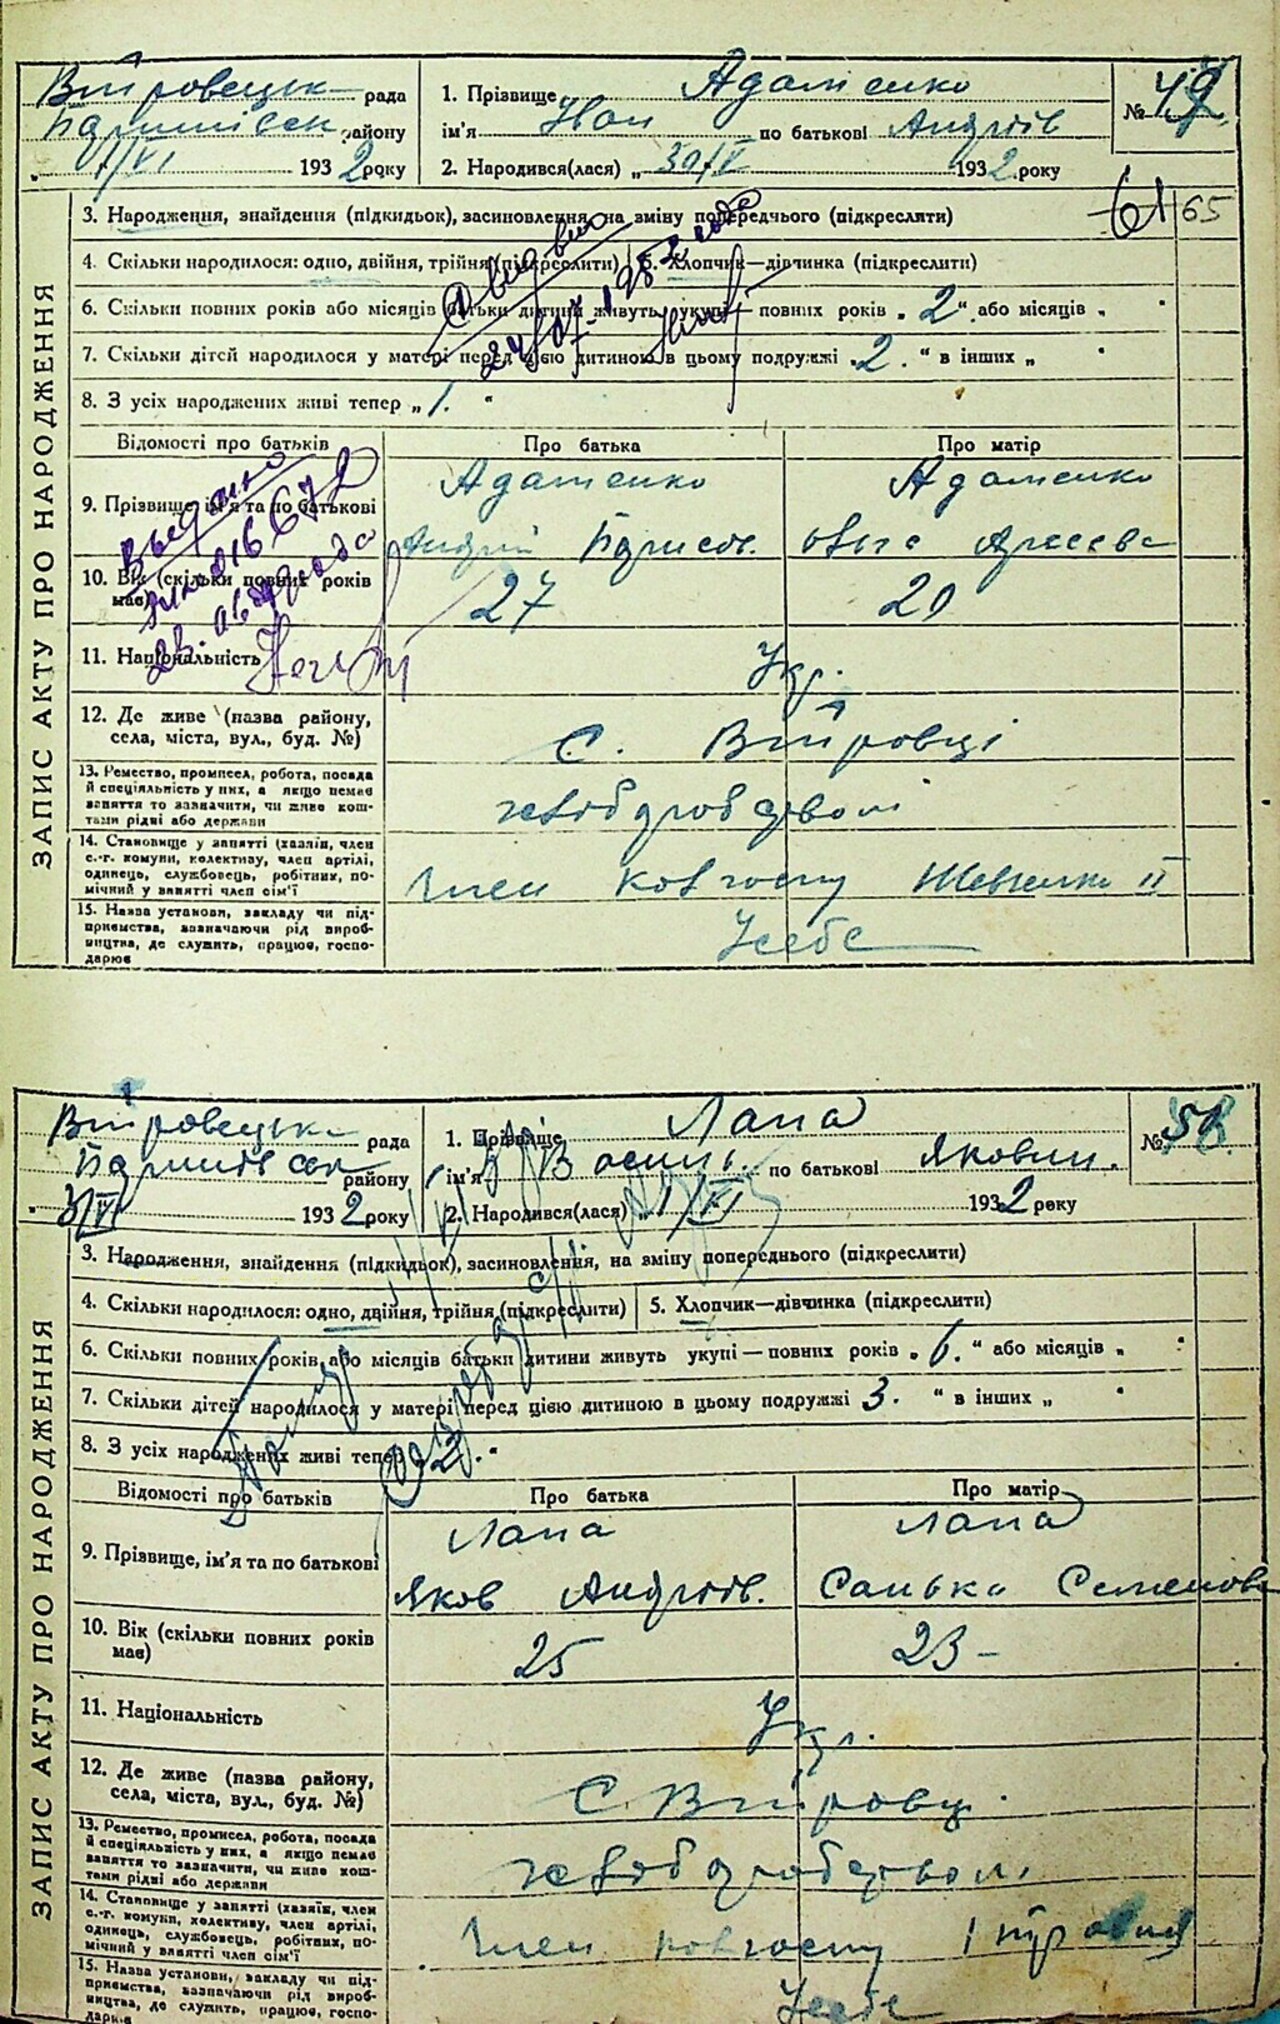 Війтовецьк рада
району
1/VI 1932 року
1. Прізвище Адаменко
ім'я Іван по батькові Андріїв
2. Народився(лася) „ 30/V 1932 року
№ 49
ЗАПИС АКТУ ПРО НАРОДЖЕННЯ
3. Народження, знайдення (підкидьок), засиновлення, на зміну попереднього (підкреслити)
61 65
4. Скільки народилося: одно, двійня, трійня (підкреслити) 5. Хлопчик—дівчинка (підкреслити)
6. Скільки повних років або місяців батьки дитини живуть укупі — повних років „ 2 “ або місяців „
7. Скільки дітей народилося у матері перед цією дитиною в цьому подружжі „ 2. “ в інших „ “
8. З усіх народжених живі тепер „ 1. “
Відомості про батьків Про батька Про матір
9. Прізвище, ім'я та по батькові
Адаменко Адаменко
Андрій
10. Вік (скільки повних років має)
27 20
11. Національність Укр.
12. Де живе (назва району,
села, міста, вул., буд. №)
13. Ремество, промисел, робота, посада
й спеціяльність у них, а якщо немає
заняття то зазначити, чи живе кош-
тами рідні або держави
хліборобством
14. Становище у занятті (хазяїн, член
с.-г. комуни, колективу, член артілі,
одинець, службовець, робітник, по-
мічний у занятті член сім'ї
член колгоспу Шевченка II
15. Назва установи, закладу чи під-
приємства, зазначаючи рід вироб-
ництва, де служить, працює, госпо-
дарює
У себе
Выдано
рада
району
3/VI 1932 року
1. Прізвище Лапа
ім'я Василь по батькові Якович.
2. Народився(лася) „ 1/VI 1932 року
№ 50
ЗАПИС АКТУ ПРО НАРОДЖЕННЯ
3. Народження, знайдення (підкидьок), засиновлення, на зміну попереднього (підкреслити)
4. Скільки народилося: одно, двійня, трійня (підкреслити) 5. Хлопчик—дівчинка (підкреслити)
6. Скільки повних років або місяців батьки дитини живуть укупі — повних років „ 6. “ або місяців „
7. Скільки дітей народилося у матері перед цією дитиною в цьому подружжі 3. “ в інших „ “
8. З усіх народжених живі тепер 2. “
Відомості про батьків Про батька Про матір
9. Прізвище, ім'я та по батькові
Лапа Лапа
Яков Андріїв. Санька Семенова
10. Вік (скільки повних років має)
25 23 –
11. Національність Укр.
12. Де живе (назва району,
села, міста, вул., буд. №)
13. Ремество, промисел, робота, посада
й спеціяльність у них, а якщо немає
заняття то зазначити, чи живе кош-
тами рідні або держави
хліборобством.
14. Становище у занятті (хазяїн, член
с.-г. комуни, колективу, член артілі,
одинець, службовець, робітник, по-
мічний у занятті член сім'ї
член колгоспу 1 травня
15. Назва установи, закладу чи під-
приємства, зазначаючи рід вироб-
ництва, де служить, працює, госпо-
дарює
У себе